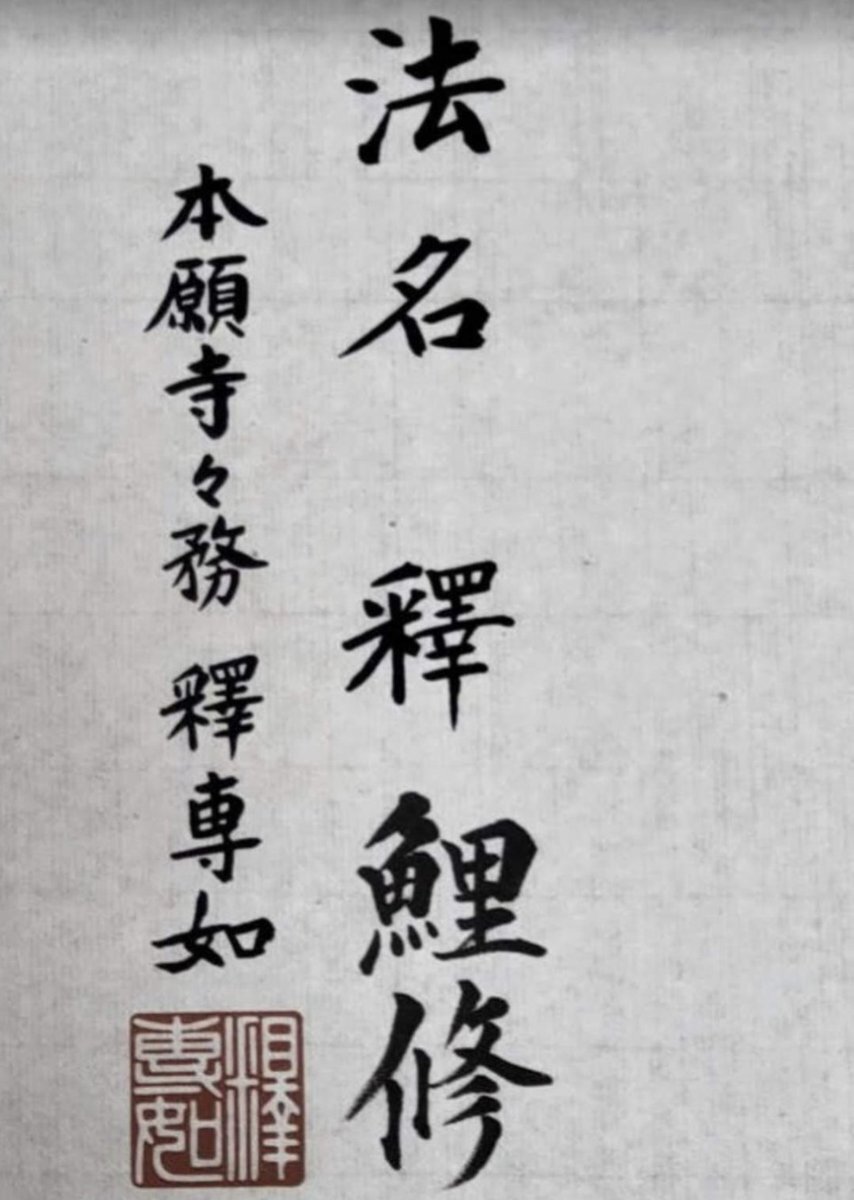 法名 釋鯉修
本願寺々務 釋専如
釋専如